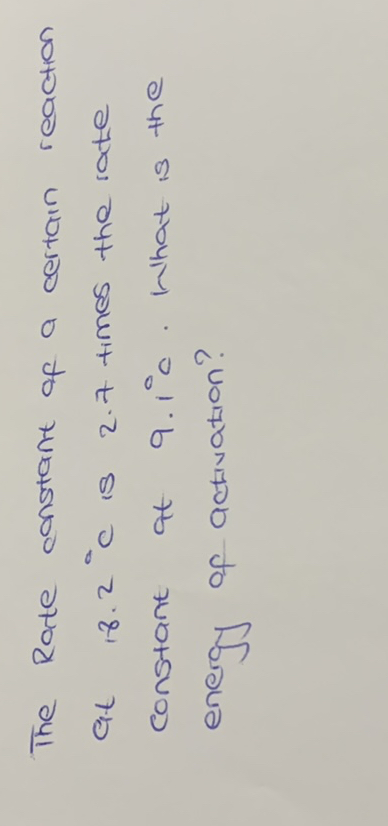 The Rate constant of a certain reaction
at 18.2 °C is 2.7 times the rate
constant at 9.1°C. What is the
energy of activation?